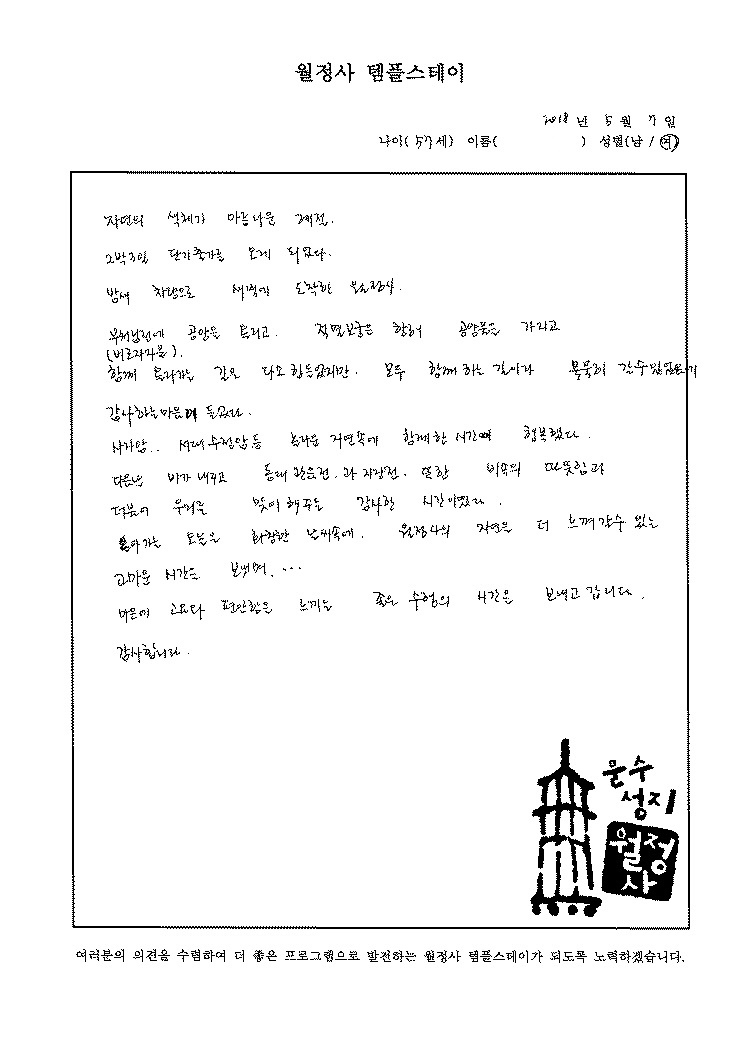 월정사 템플스테이
2018 년 5 월 7 일
나이( 57 세) 이름( ) 성별(남 / 여)
자연의 색체가 아름다운 계절.
2박3일 단기출가를 오게 되었다.
밤새 차량으로 새벽에 도착한 월정사.
부처님전에 공양을 올리고. 적멸보궁은 향해 공양물을 가지고
(미로자자을).
함께 올라가는 길은 다소 힘들었지만. 모두 함께 하는 길이라 묵묵히 갈수있었기
감사하는마음이 들었다.
사자암.. 서대수정암등 녹다운 자연속에 함께한 시간에 행복했다.
다음날 비가 내리고 동대 관음전.과 지장전. 또한 비속의 따뜻함과
더불어 우리를 맞이해주는 감사한 시간이었다.
돌아가는 오늘은 화창한 날씨속에. 월정사의 자연을 더 느껴갈수 있는
고마운 시간을 보내며. ...
마음에 고요와 편안함을 느끼는 좋은 수행의 시간을 보내고 갑니다.
감사합니다.
문수
성지
월정
사
여러분의 의견을 수렴하여 더 좋은 프로그램으로 발전하는 월정사 템플스테이가 되도록 노력하겠습니다.